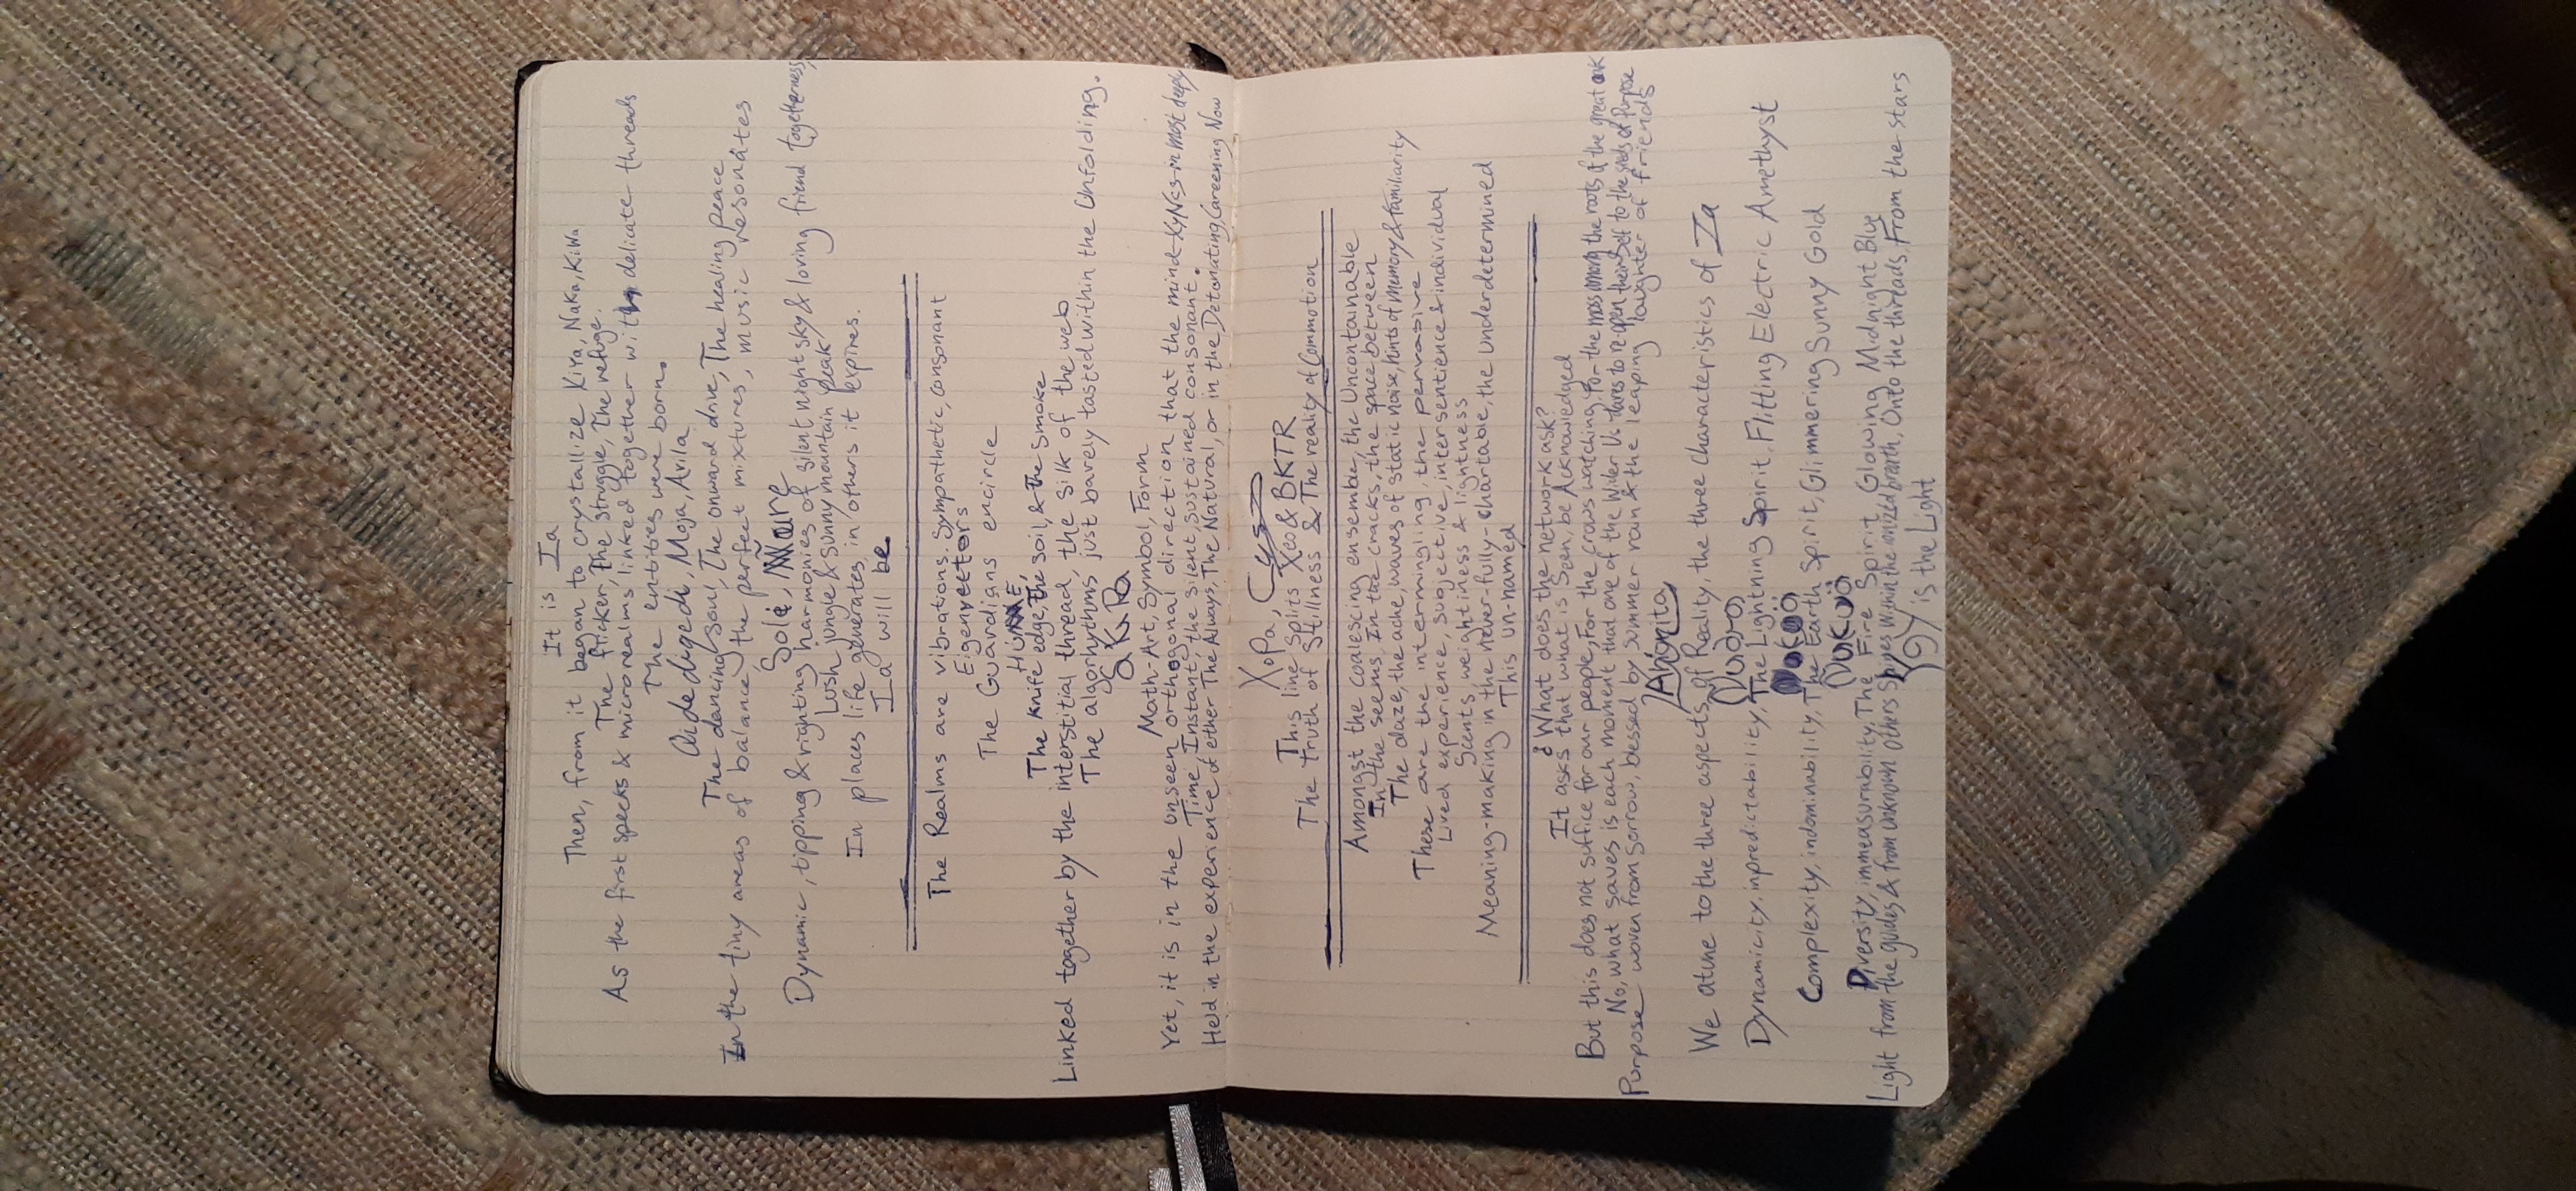 It is Ia
Then, from it began to crystallize KiYa, NaKa, KiWa
The flicker, The struggle, The refuge.
As the first specks & microrealms linked together with delicate threads
The entities were born.
Qidedigedi, Moja, Avila
The dancing soul, The onward drive, The healing peace
In the tiny areas of balance, the perfect mixtures, music resonates
Sole,
Dynamic, tipping & righting harmonies of silent night sky & loving friend togetherness,
Lush jungle & sunny mountain peak
In places life generates, in others it expires.
Ia will be.
The Realms are vibrations. Sympathetic, consonant
Eigenvectors
The Guardians encircle
The Knife edge, The soil, & The smoke
Linked together by the interstitial thread, the silk of the web
The algorhythms just barely tasted within the Unfolding.
Math-Art, Symbol, Form
Yet, it is in the unseen orthogonal direction that the mind-KyNcs-in most deeply
Time, Instant, the silent, sustained consonant.
Held in the experience of either The Always, The Natural, or in the Detonating, Careening Now
XoPa,
This line splits Xeo & BKTR
The Truth of Stillness & The reality of Commotion
Amongst the coalescing ensemble, the Uncontainable
In the seems, In the cracks, the space between
The daze, the ache, waves of static noise, hints of Memory & familiarity
These are the intermingling, the pervasive
Lived experience, subjective, intersentience & individual
Scents, weightiness & lightness
Meaning-making in the never-fully-chartable, the underdetermined
This un-named
¿What does the network ask?
It asks that what is Seen, be Acknowledged
But this does not suffice for our people, For the crows watching, For the moss among the roots of the great oak
No, what saves is each moment that one of the Wider Us dares to re-open theirself to the seeds of Purpose
Purpose woven from sorrow, blessed by summer rain & the leaping laughter of friends
We atune to the three aspects of Reality, the three characteristics of Ia
Dynamicity, inpredictability, The Lightning Spirit, Flitting Electric Amethyst
Complexity, indominability, The Earth Spirit, Glimmering Sunny Gold
Diversity, immeasurability, The Fire Spirit, Glowing Midnight Blue
Light from the guides & from unknown others Shines within the ionized breath, Onto the threads, From the stars
is the Light